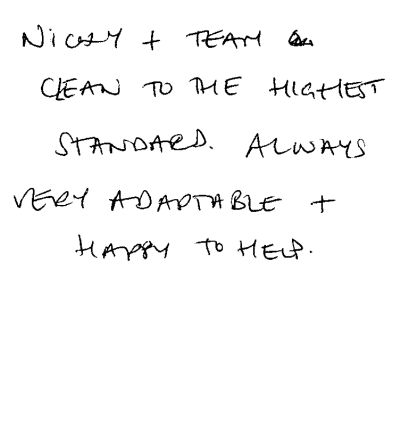 NICKY + TEAM
CLEAN TO THE HIGHEST
STANDARD. ALWAYS
VERY ADAPTABLE +
HAPPY TO HELP.